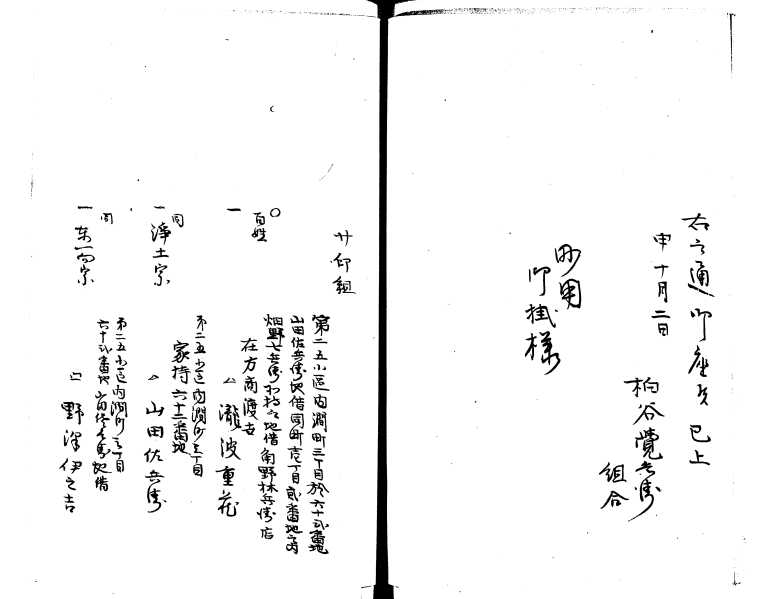 右之通御座候已上
申十月二日
柏谷覚兵衛
組合
御用
御掛様
廿印組
〇
百姓
一
第二五小区内澗町三丁目於六十弐番地
山田佐兵衛地借同町壱丁目弐番地
畑野七兵衛扣持之地借角野林兵衛店
在方商渡世
瀧波重花
同
一 浄土宗
第二五小区内澗町三丁目
家持六十二番地
山田佐兵衛
同
一 东一向宗
第二五小区内澗町三丁目
六十弐番地山田佐兵衛地借
野澤伊之吉